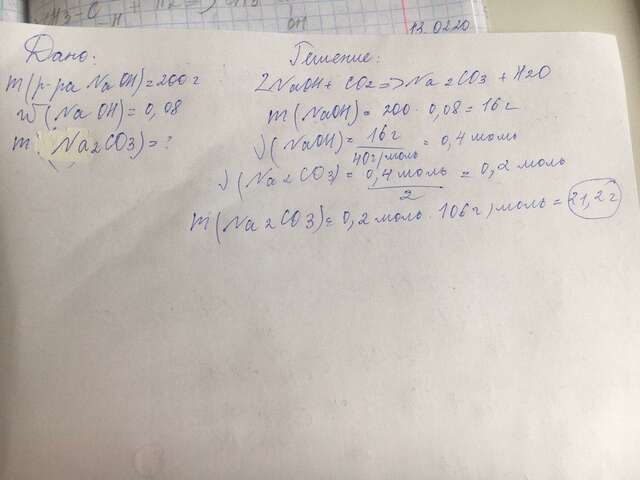 13.02.20
Дано:
m(р-ра NaOH)=200г
w(NaOH)=0,08
m(Na2CO3)=?
Решение:
2NaOH+CO2=>Na2CO3+H2O
m(NaOH)=200·0,08=16г
ν(NaOH)=16г/40г/моль=0,4моль
ν(Na2CO3)=0,4моль/2=0,2моль
m(Na2CO3)=0,2моль·106г/моль=21,2г